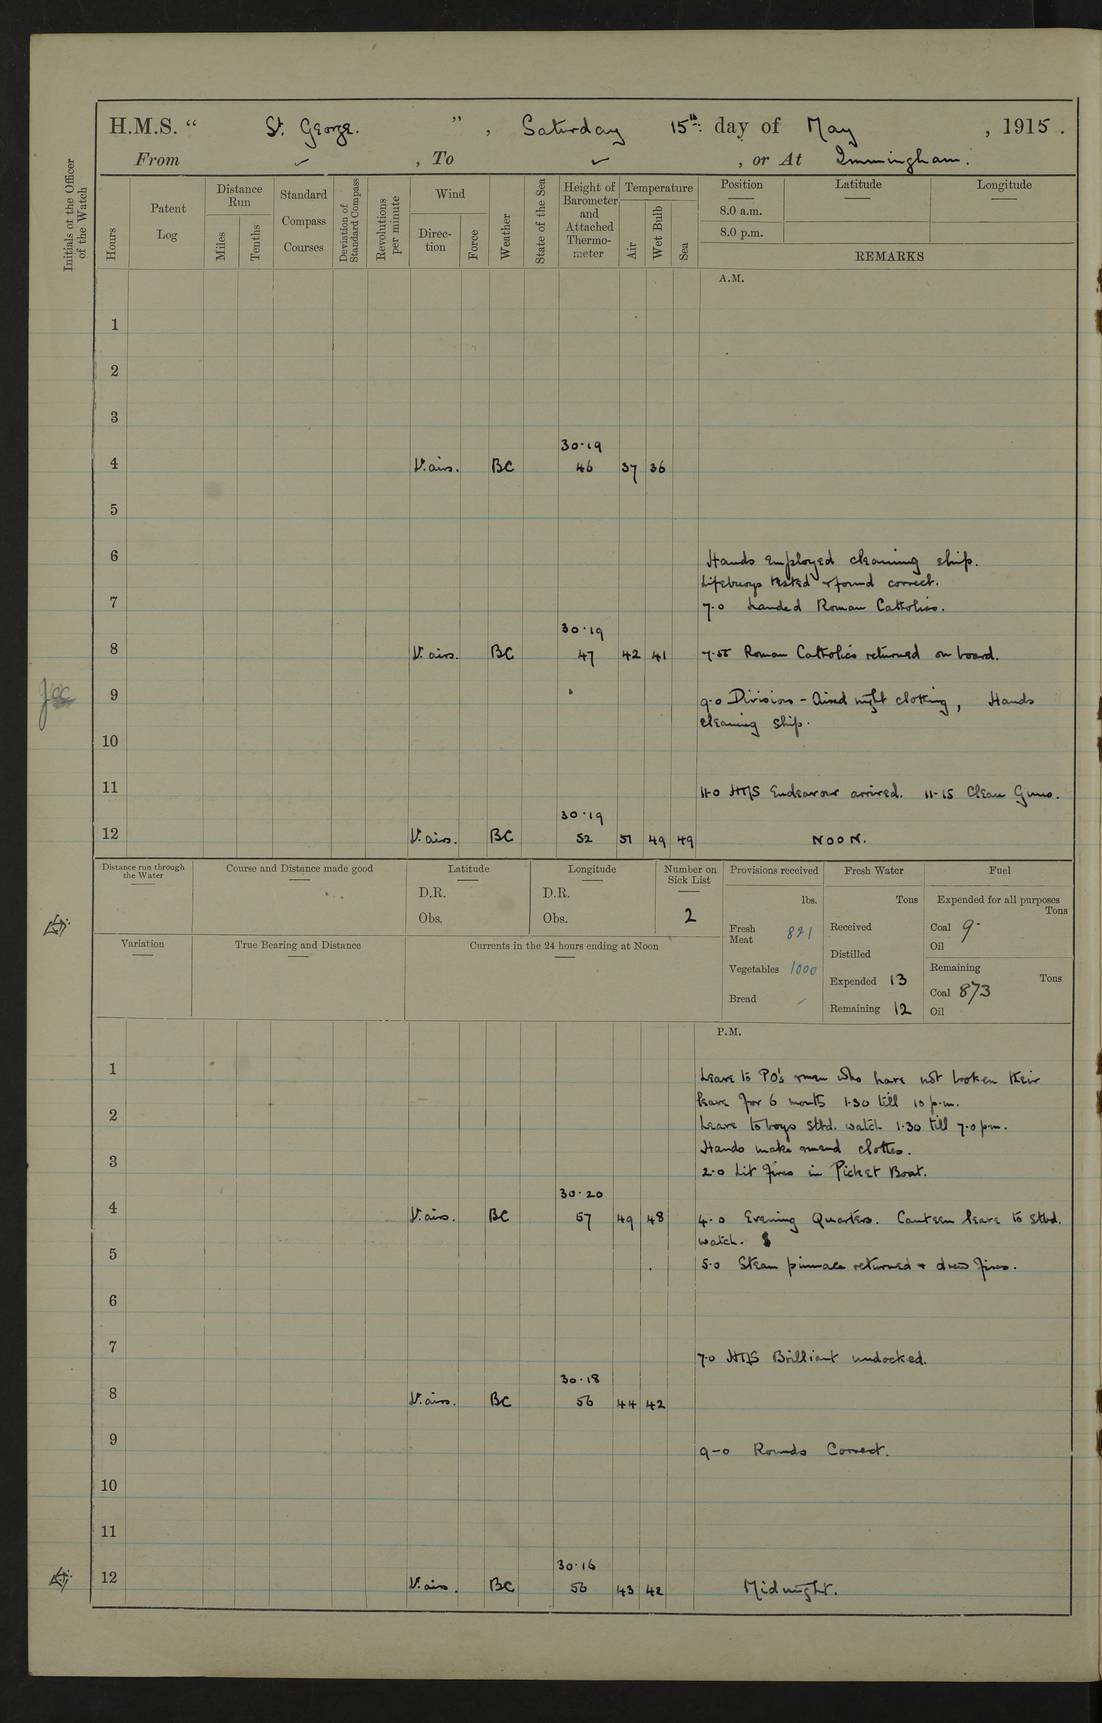 H.M.S. “ St. George. ” , Saturday 15th day of May , 1915 .
From ✓ , To ✓ , or At Immingham.
Initials of the Officer of the Watch
Hours
Patent Log
Distance Run
Miles
Tenths
Standard Compass Courses
Deviation of Standard Compass
Revolutions per minute
Wind
Direction
Force
Weather
State of the Sea
Height of Barometer and Attached Thermometer
Temperature
Air
Wet Bulb
Sea
Position Latitude Longitude
8.0 a.m.
8.0 p.m.
REMARKS
A.M.
1
2
3
30.19
4 V. airs. BC 46 37 36
5
6 Hands employed cleaning ship.
Lifebuoys tested & found correct.
7 7.0 Landed Roman Catholics.
30.19
8 V. airs. BC 47 42 41 7.55 Roman Catholics returned on board.
9 9.0 Divisions - Aired night clothing, Hands
cleaning ship.
10
11 11.0 HMS Endeavour arrived. 11-15 Clean Guns.
30.19
12 V. airs. BC 52 51 49 49 NOON.
Distance run through the Water
Course and Distance made good
Latitude
D.R.
Obs.
Longitude
D.R.
Obs.
Number on Sick List
2
Provisions received
lbs.
Fresh Meat 821
Vegetables 1000
Bread
Fresh Water
Tons
Received
Distilled
Expended 13
Remaining 12
Fuel
Expended for all purposes
Tons
Coal 9.
Oil
Remaining
Tons
Coal 873
Oil
Variation
True Bearing and Distance
Currents in the 24 hours ending at Noon
P.M.
1 Leave to PO's & men who have not broken their
leave for 6 months 1.30 till 10 p.m.
2 Leave to boys Stbd. watch 1.30 till 7.0 p.m.
Hands make & mend clothes.
3 2.0 Lit fires in Picket Boat.
30.20
4 V. airs. BC 57 49 48 4.0 Evening Quarters. Canteen leave to Stbd.
watch.
5 5.0 Steam pinnace returned & drew fires.
6
7 7.0 HMS Brilliant undocked.
30.18
8 V. airs. BC 56 44 42
9 9-0 Rounds Correct.
10
11
30.16
12 V. airs. BC 56 43 42 Midnight.